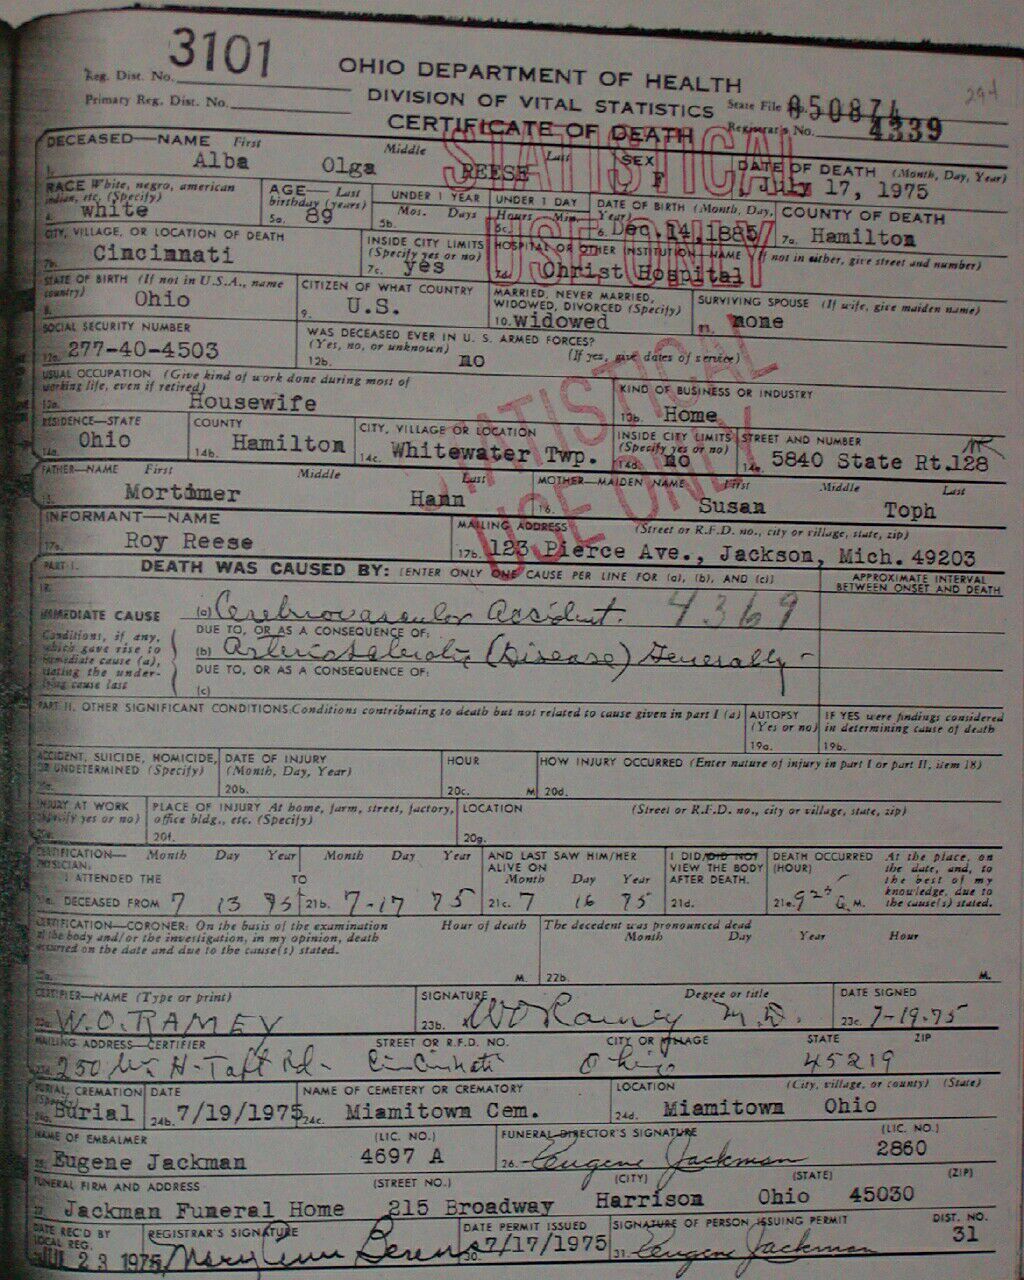 3101
Reg. Dist. No.
Primary Reg. Dist. No.
OHIO DEPARTMENT OF HEALTH
DIVISION OF VITAL STATISTICS
CERTIFICATE OF DEATH
294
State File No. 050874
Registrar's No. 4339
STATISTICAL
USE ONLY
DECEASED—NAME First Middle Last SEX DATE OF DEATH (Month, Day, Year)
1. Alba Olga REESE F July 17, 1975
RACE White, negro, american indian, etc. (Specify) AGE—Last birthday (years) UNDER 1 YEAR UNDER 1 DAY DATE OF BIRTH (Month, Day, Year) COUNTY OF DEATH
Mos. Days Hours Min.
4. white 5a. 89 5b. 5c. 6. Dec. 14, 1885 7a. Hamilton
CITY, VILLAGE, OR LOCATION OF DEATH INSIDE CITY LIMITS (Specify yes or no) HOSPITAL OR OTHER INSTITUTION—NAME (If not in either, give street and number)
7b. Cincinnati 7c. yes 7d. Christ Hospital
STATE OF BIRTH (If not in U.S.A., name country) CITIZEN OF WHAT COUNTRY MARRIED, NEVER MARRIED, WIDOWED, DIVORCED (Specify) SURVIVING SPOUSE (If wife, give maiden name)
8. Ohio 9. U.S. 10. widowed 11. none
SOCIAL SECURITY NUMBER WAS DECEASED EVER IN U. S. ARMED FORCES?
(Yes, no, or unknown) (If yes, give dates of service)
12a. 277-40-4503 12b. no
USUAL OCCUPATION (Give kind of work done during most of working life, even if retired) KIND OF BUSINESS OR INDUSTRY
13a. Housewife 13b. Home
STATISTICAL
USE ONLY
RESIDENCE—STATE COUNTY CITY, VILLAGE OR LOCATION INSIDE CITY LIMITS (Specify yes or no) STREET AND NUMBER
14a. Ohio 14b. Hamilton 14c. Whitewater Twp. 14d. no 14e. 5840 State Rt.128
FATHER—NAME First Middle Last MOTHER—MAIDEN NAME First Middle Last
15. Mortimer Hann 16. Susan Toph
INFORMANT—NAME MAILING ADDRESS (Street or R.F.D. no., city or village, state, zip)
17a. Roy Reese 17b. 123 Pierce Ave., Jackson, Mich. 49203
PART I. DEATH WAS CAUSED BY: [ENTER ONLY ONE CAUSE PER LINE FOR (a), (b), AND (c)] APPROXIMATE INTERVAL BETWEEN ONSET AND DEATH
18.
IMMEDIATE CAUSE (a) Cerebrovascular Accident. 4369
Conditions, if any, which gave rise to immediate cause (a), stating the underlying cause last
DUE TO, OR AS A CONSEQUENCE OF:
(b) Arteriosclerotic (Disease) Generally -
DUE TO, OR AS A CONSEQUENCE OF:
(c)
PART II. OTHER SIGNIFICANT CONDITIONS: Conditions contributing to death but not related to cause given in part I (a) AUTOPSY (Yes or no) IF YES were findings considered in determining cause of death
19a. 19b.
ACCIDENT, SUICIDE, HOMICIDE, OR UNDETERMINED (Specify) DATE OF INJURY (Month, Day, Year) HOUR HOW INJURY OCCURRED (Enter nature of injury in part I or part II, item 18)
20a. 20b. 20c. M 20d.
INJURY AT WORK (Specify yes or no) PLACE OF INJURY At home, farm, street, factory, office bldg., etc. (Specify) LOCATION (Street or R.F.D. no., city or village, state, zip)
20e. 20f. 20g.
CERTIFICATION—PHYSICIAN: Month Day Year Month Day Year AND LAST SAW HIM/HER ALIVE ON I DID/DID NOT VIEW THE BODY AFTER DEATH. DEATH OCCURRED (HOUR) At the place, on the date, and, to the best of my knowledge, due to the cause(s) stated.
I ATTENDED THE TO Month Day Year
21a. DECEASED FROM 7 13 75 21b. 7-17 75 21c. 7 16 75 21d. 21e. M.
CERTIFICATION—CORONER: On the basis of the examination of the body and/or the investigation, in my opinion, death occurred on the date and due to the cause(s) stated. Hour of death The decedent was pronounced dead
Month Day Year Hour
22a. M. 22b. M.
CERTIFIER—NAME (Type or print) SIGNATURE Degree or title DATE SIGNED
23a. W.O. RAMEY 23b. WO Ramey M.D. 23c. 7-19-75
MAILING ADDRESS—CERTIFIER STREET OR R.F.D. NO. CITY OR VILLAGE STATE ZIP
23d. 250 Wm H-Taft Rd- Cincinnati Ohio 45219
BURIAL, CREMATION (Specify) DATE NAME OF CEMETERY OR CREMATORY LOCATION (City, village, or county) (State)
24a. Burial 24b. 7/19/1975 24c. Miamitown Cem. 24d. Miamitown Ohio
NAME OF EMBALMER (LIC. NO.) FUNERAL DIRECTOR'S SIGNATURE (LIC. NO.)
25. Eugene Jackman 4697 A 26. Eugene Jackman 2860
FUNERAL FIRM AND ADDRESS (STREET NO.) (CITY) (STATE) (ZIP)
27. Jackman Funeral Home 215 Broadway Harrison Ohio 45030
DATE REC'D BY LOCAL REG. REGISTRAR'S SIGNATURE DATE PERMIT ISSUED SIGNATURE OF PERSON ISSUING PERMIT DIST. NO.
JUL 23 1975 Mary Ann Berens 30. 7/17/1975 31. Eugene Jackman 31